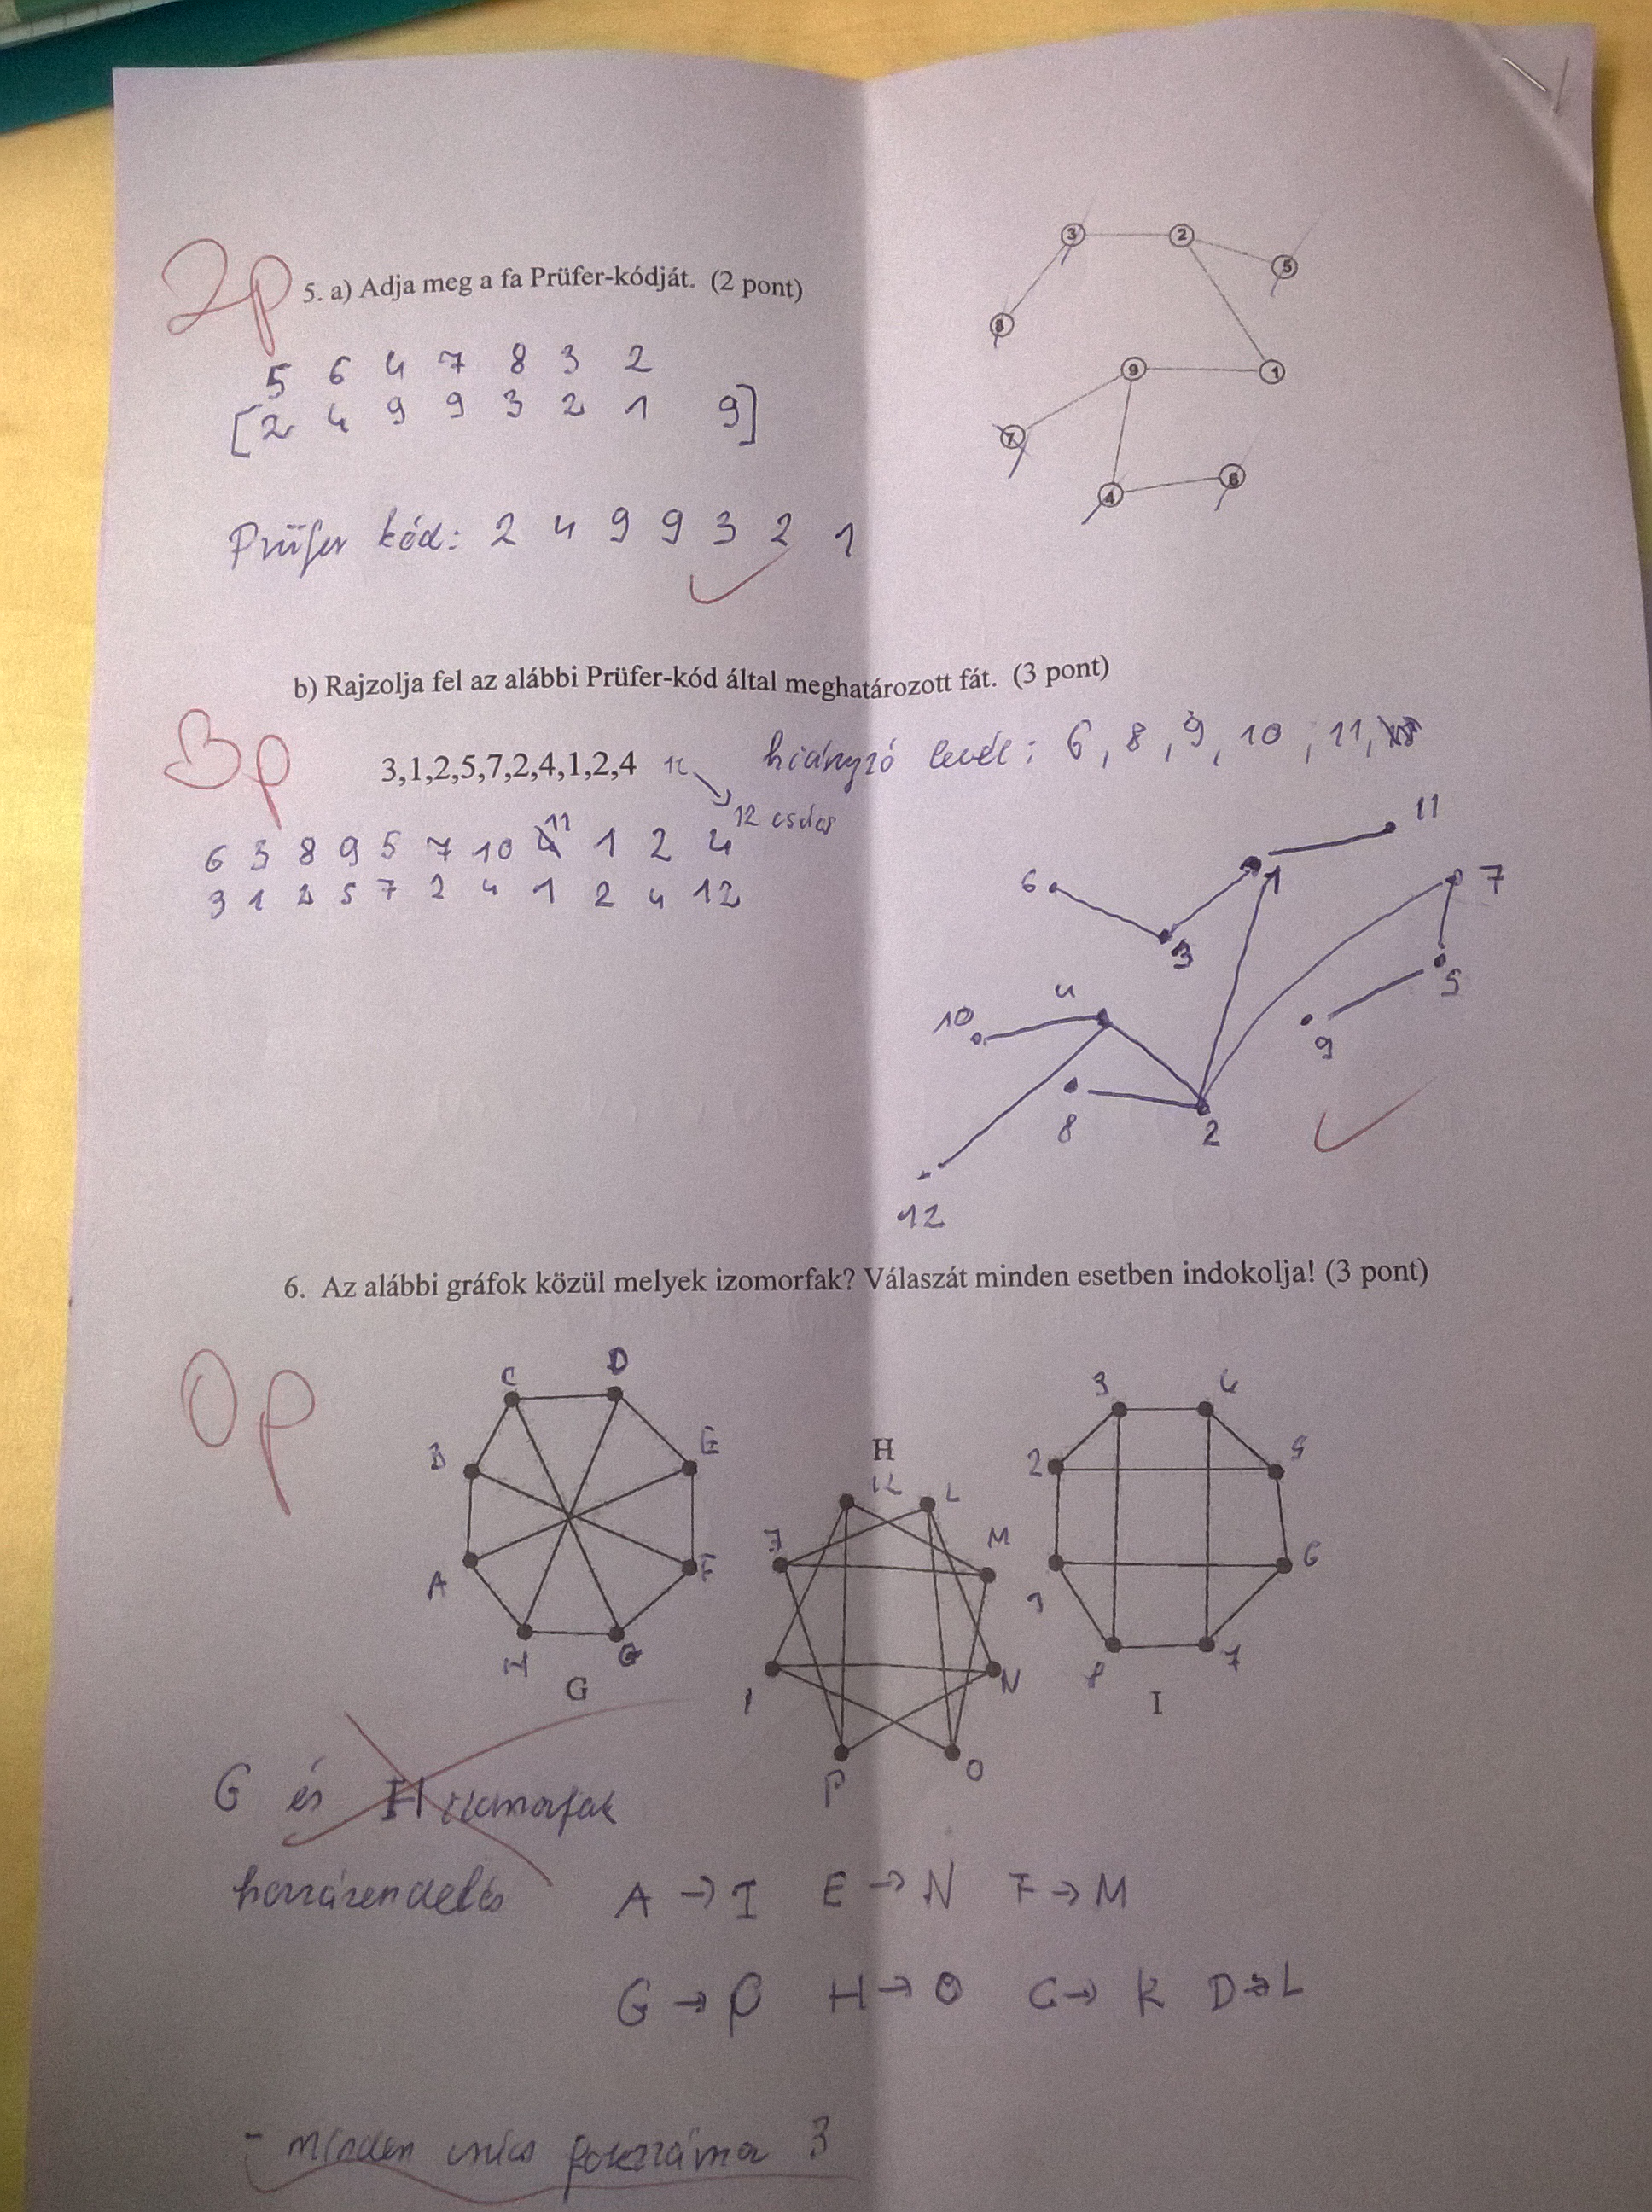 2p
5. a) Adja meg a fa Prüfer-kódját. (2 pont)
3 2 5 8 9 1 7 4 6
5 6 4 7 8 3 2
[2 4 9 9 3 2 1 9]
Prüfer kód: 2 4 9 9 3 2 1
b) Rajzolja fel az alábbi Prüfer-kód által meghatározott fát. (3 pont)
3p
3,1,2,5,7,2,4,1,2,4 12 hiányzó levél: 6, 8, 9, 10, 11,
12 csúcs
6 3 8 9 5 7 10 11 1 2 4
3 1 2 5 7 2 4 1 2 4 12
11
6 1 7
3
5
4
10
9
8
2
12
6. Az alábbi gráfok közül melyek izomorfak? Válaszát minden esetben indokolja! (3 pont)
0p
C D
B E
A F
H G
G
H
K L
J M
I N
P O
3 4
2 5
1 6
8 7
I
G és H izomorfak
hozzárendelés A → I E → N F → M
G → P H → O C → K D → L
- minden csúcs fokszáma 3